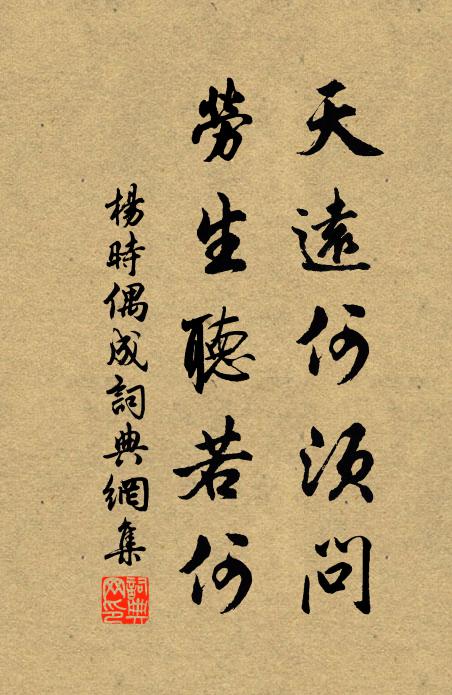 天遠何須問
勞生聽若何
楊時偶成詞典網集
詞典網印